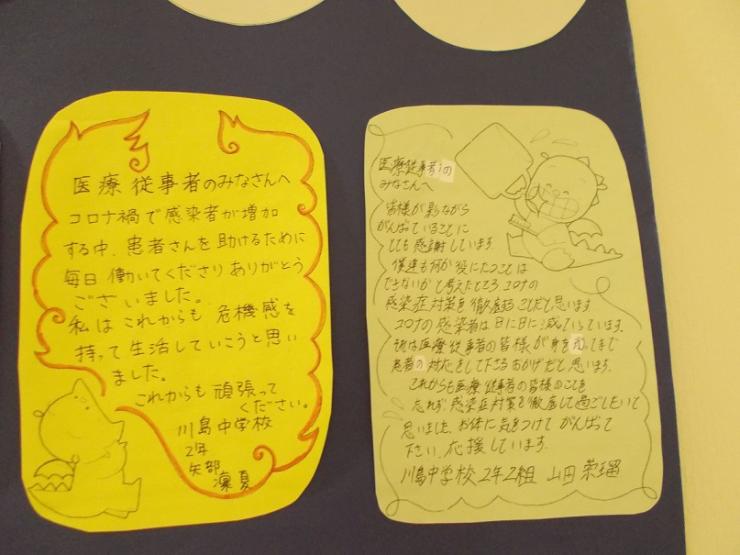 医療従事者のみなさんへ
コロナ禍で感染者が増加
する中、患者さんを助けるために
毎日働いてくださりありがとう
ございました。
私はこれからも危機感を
持って生活していこうと思い
ました。
これからも頑張って
ください。
川島中学校
2年
矢部
凜夏
医療従事者の
みなさんへ
皆様が影ながら
がんばていることに
とても感謝しています
僕達も何か役にたつことは
できないかと考えたところコロナの
感染症対策を徹底することだと思います
コロナの感染者は日に日に減っていっています。
医療従事者の皆様が身を
患者の対応をして下さるおかげだと思います。
これからも医療従事者の皆様のことを
忘れず、感染症対策を徹底して過ごしたいて
思いました。お体に気をつけてがんばって
下さい。応援しています。
川島中学校2年2組 山田